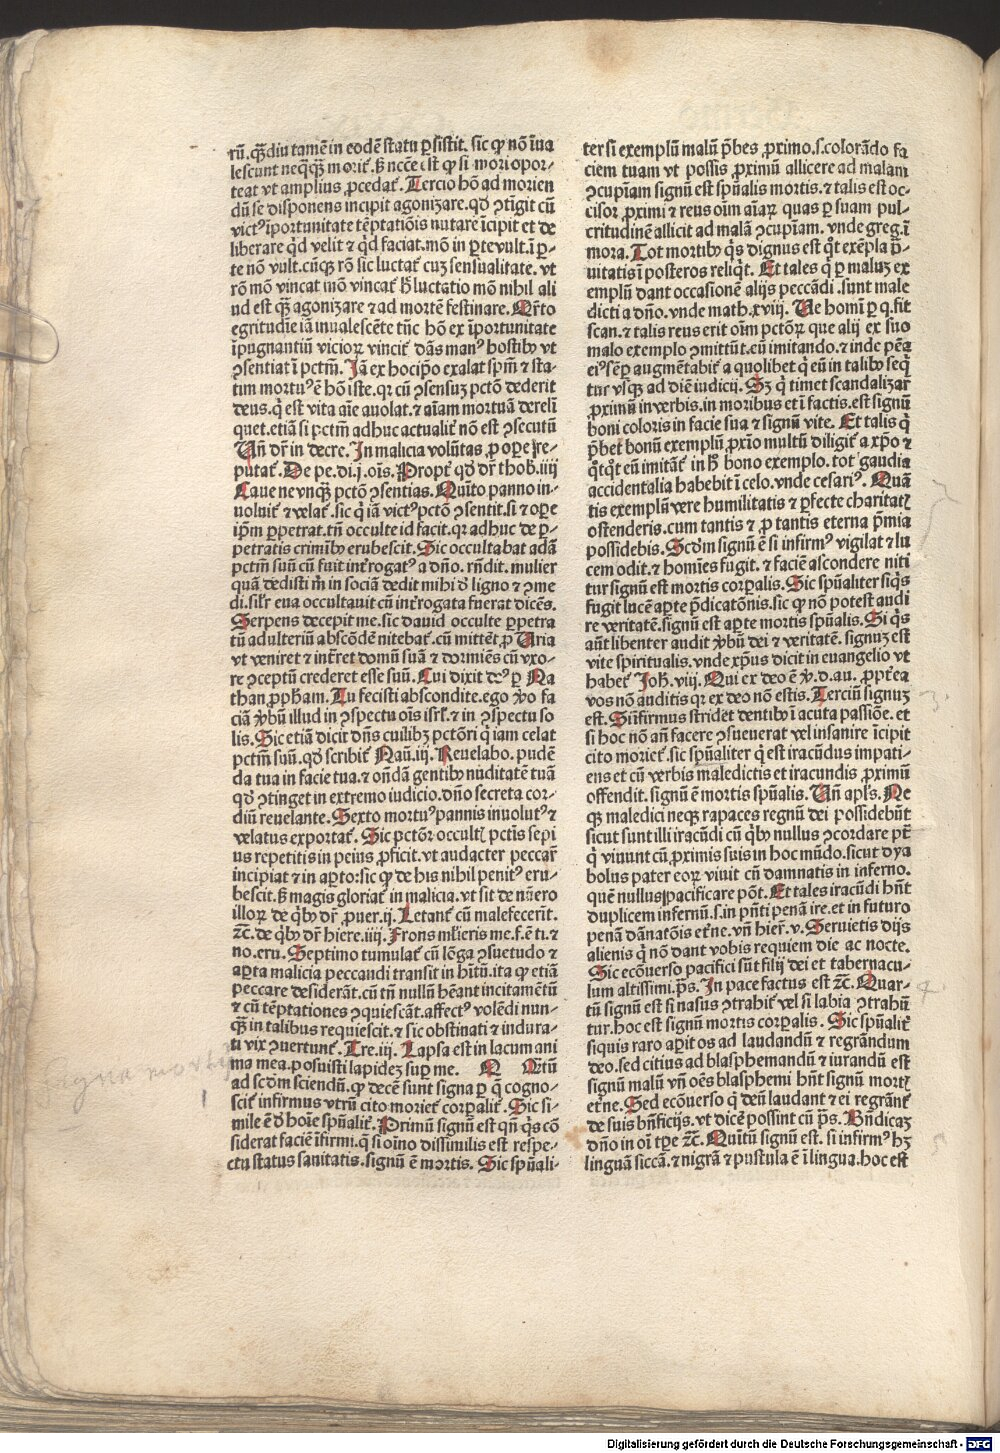 rū.qꝫdiu tamē in eodē statu ꝑsistit. sic ꝙ nō īua
lescunt neqꝫqꝫ moriť. ß ncc̄e est ꝙ si mori opor-
teat vt amplius ꝓcedať. Tercio hō ad morien
dū se disponens incipit agonizare. qď ꝯtīgit cū
victꝰ īportunitate tēptatiōis nutare īcipit et de
liberare qͥd velit ⁊ qͥd faciat. mō in ꝑte vult. ī ꝑ-
te nō vult. cūqꝫ rō sic luctať cuꝫ sensualitate. vt
rō mō vincat mō vincať ß luctatio mō nihil ali
ud est qꝫ agonizare ⁊ ad mortē festinare. Qͣrto
egritudīe iā inualescēte tūc hō ex īportunitate
īpugnantiū vicioꝝ vinciť dās manꝰ hostibꝰ vt
ꝯsentiat ī pctm̄. Jā ex hoc ip̄o exalat spm̄ ⁊ sta-
tim mortuꝰ ē hō iste. qꝛ cū ꝯsensuꝫ pctō dederit
deus. qͥ est vita aīe auolat. ⁊ aīam mortuā derelī
quet. etiā si pctm̄ adhuc actualiť nō est ꝯsecutū
Vn̄ dr̄ in decre. Jn malicia volūtas ꝓ oꝑe re-
putať. De pe. di. j. oīs. Propť qď dr̄ thob. iiij
Caue ne vnqꝫ pctō ꝯsentias. Quīto panno in-
uoluiť ⁊ velať. sic qͥ iā victꝰ pctō ꝯsentit. si ⁊ oꝑe
ip̄m ꝑpetrat. tn̄ occulte id facit. qꝛ adhuc de ꝑ-
petratis crimībꝰ erubescit. Sic occultabat adā
pctm̄ suū cū fuit inťrogatꝰ a dn̄o. rn̄dit. mulier
quā dedisti m̄ in sociā dedit mihi ď ligno ⁊ ꝯme
di. silr̄ eua occultauit cū inťrogata fuerat dicēs.
Serpens decepit me. sic dauid occulte ꝑpetra
tū adulteriū abscōdē nitebať. cū mitteť ꝓ Vria
vt veniret ⁊ inťret domū suā ⁊ dormiēs cū vxo-
re ꝯceptū crederet esse suū. Cui dixit deꝰ ꝑ Na
than ꝓphā. Tu fecisti abscondite. ego ꝟo fa
ciā ꝟbū illud in ꝯspectu oīs isrl̄. ⁊ in ꝯspectu so
lis. Sic etiā dicit dn̄s cuilibꝫ pctōri qͥ iam celat
pctm̄ suū. qď scribiť Naū. iij. Reuelabo. pudē
da tua in facie tua. ⁊ oñdā gentibꝰ nuditatē tuā
qď ꝯtinget in extremo iudicio. dn̄o secreta cor-
diū reuelante. Sexto mortuꝰ pannis inuolutꝰ ⁊
velatus exportať. Sic pctōr occultꝭ pctis sepi
us repetitis in peius ꝓficit. vt audacter peccar̄
incipiat ⁊ in aꝑto: sic ꝙ de his nihil penitꝰ eru-
bescit. ß magis gloriať in malicia. vt sit de nūero
illoꝝ de qͥbꝰ dr̄. ꝓuer. ij. Letanť cū malefecerīt.
⁊c̄. de qͥbꝰ dr̄ hiere. iiij. Frons ml̄ieris me. f. ē ti. ⁊
no. eru. Septimo tumulať cū lōga ꝯsuetudo ⁊
aꝑta malicia peccandi transit in hītū. ita ꝙ etiā
peccare desiderāt. cū tn̄ nullū hēant incitamētū
⁊ cū tēptationes ꝯquiescāt. affectꝰ volēdi nun-
qꝫ in talibus requiescit. ⁊ sic obstinati ⁊ indura-
ti vix ꝯuertunť. Tre. iij. Lapsa est in lacum ani
ma mea. ꝓsuisti lapideꝫ suꝑ me. N Qͣrtū
ad scd̄m sciendū. ꝙ decē sunt signa ꝑ qͥ cogno-
sciť infirmus vtrū cito morieť corꝑaliť. Sic si-
mile ē ď hoīe spūaliť. Primū signū est qn̄ qͥs cō
siderat faciē īfirmi. qͥ si oīno dissimilis est respe-
ctu status sanitatis. signū ē mortis. Sic spūali-
ter si exemplū malū p̄bes ꝓximo. s. colorādo fa
ciem tuam vt possis ꝓximū allicere ad malam
ꝯcupīam signū est spūalis mortis. ⁊ talis est oc-
cisor ꝓximi ⁊ reus oīm aīaꝝ quas ꝑ suam pul-
critudinē allicit ad malā ꝯcupīam. vnde greg. ī
mora. Tot mortibꝰ qͥs dignus est qͦt exēpla p̄-
uitatis ī posteros reliqͥt. Et tales qͥ ꝑ maluꝫ ex
emplū dant occasionē alijs peccādi. sunt male
dicti a dn̄o. vnde math. xviij. Ve homī ꝑ q. fit
scan. ⁊ talis reus erit oīm pctōꝝ que alij ex suo
malo exemplo ꝯmittūt. eū imitando. ⁊ inde pēa
eiꝰ sēꝑ augmētabiť a quolibet qͥ eū in talibꝰ seqͥ
tur vsqꝫ ad diē iudicij. Sꝫ qͥ timet scandalizar
ꝓximū in verbis. in moribus et ī factis. est signū
boni coloris in facie sua ⁊ signū vite. Et talis qͥ
p̄bet bonū exemplū ꝓxīo multū diligiť a xp̄o ⁊
qͦtqͦt eū imitāť in ß bono exemplo. tot gaudia
accidentalia habebit ī celo. vnde cesariꝰ. Quā
tis exemplū vere humilitatis ⁊ ꝑfecte charitatꝭ
ostenderis. cum tantis ⁊ ꝓ tantis eterna p̄mia
possidebis. Scd̄m signū ē si infirmꝰ vigilat ⁊ lu
cem odit. ⁊ homīes fugit. ⁊ faciē ascondere niti
tur signū est mortis corꝑalis. Sic spūaliter siqͥs
fugit lucē aꝑte p̄dicatōnis. sic ꝙ nō potest audi
re veritatē. signū est aꝑte mortis spūalis. Si qͥs
aūt libenter audit ꝟbū dei ⁊ veritatē. signuꝫ est
vite spiritualis. vnde xp̄us dicit in euangelio vt
habeť Joh. viij. Qui ex deo ē ꝟ. d. au. ꝓpťea
vos nō auditis qꝛ ex deo nō estis. Terciū signuꝫ
est. Si īfirmus stridet dentibꝰ ī acuta passiōe. et
si hoc nō an̄ facere ꝯsueuerat vel insanire īcipit
cito morieť. sic spūaliter qͥ est iracūdus impati-
ens et cū verbis maledictis et iracundis ꝓximū
offendit. signū ē mortis spūalis. Vn̄ apl̄s. Ne
qꝫ maledici neqꝫ rapaces regnū dei possidebūt
sicut sunt illi iracūdi cū qͥbꝰ nullus ꝯcordare pt̄
qͥ viuunt cū ꝓximis suis in hoc mūdo. sicut dya
bolus pater eoꝝ viuit cū damnatis in inferno.
quē nullus pacificare pōt. Et tales iracūdi hn̄t
duplicem infernū. s. in pn̄ti penā ire. et in futuro
penā dānatōis etꝰne. vn̄ hier̄. v. Seruietis dijs
alienis qͥ nō dant vobis requiem die ac nocte.
Sic ecōuerso pacifici sūt filij dei et tabernacu-
lum altissimi. p̄s. Jn pace factus est ⁊c̄. Quar-
tū signū est si nasus ꝯtrahiť vel si labia ꝯtrahū
tur. hoc est signū mortis corꝑalis. Sic spūaliť
siquis raro aꝑit os ad laudandū ⁊ regrāndum
deo. sed citius ad blasphemandū ⁊ iurandū est
signū malū vn̄ oēs blasphemi hn̄t signū mortꝭ
etꝰne. Sed ecōuerso qͥ deū laudant ⁊ ei regrānť
de suis bn̄ficijs. vt dicē possint cū p̄s. Bn̄dicaꝫ
dn̄o in oī tꝑe ⁊c̄. Quītū signū est. si infirmꝰ hꝫ
linguā siccā. ⁊ nigrā ⁊ pustula ē ī lingua. hoc est
signa mortis
1
3.
4.
5
Digitalisierung gefördert durch die Deutsche Forschungsgemeinschaft - DFG